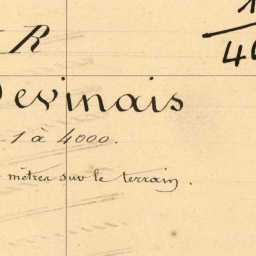 R
1
40
evinais
1 à 4000.
mètres sur le terrain.